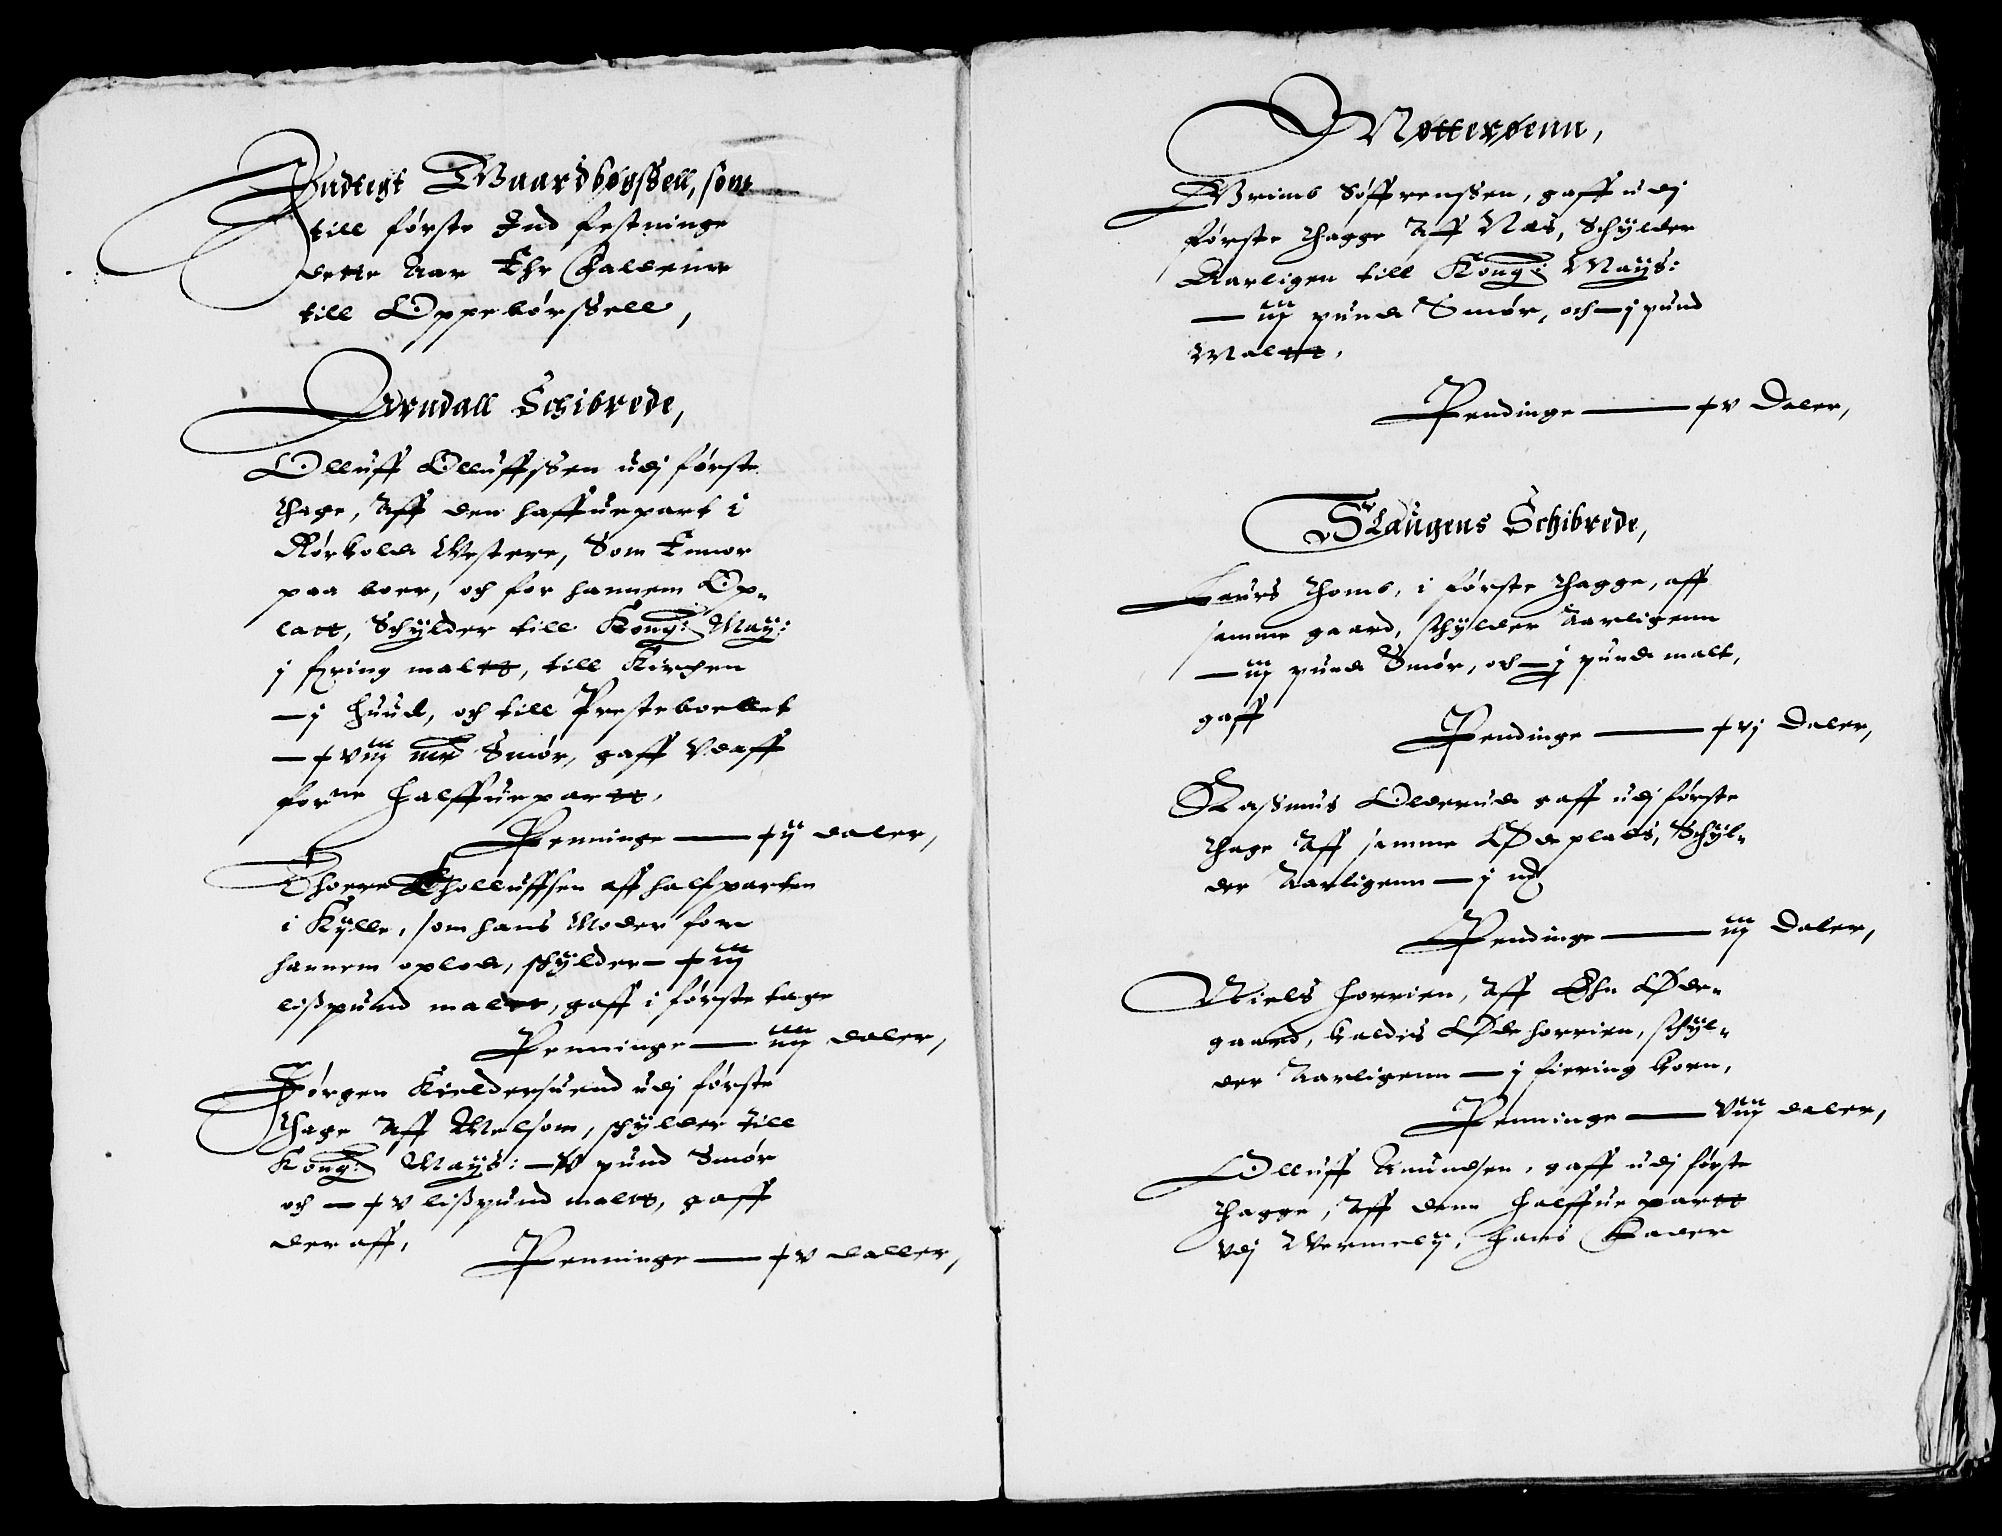 Indtegt Gaardbøgssell, som
till første Ind festninge
dette Aar Ehr falden
till Oppebørssell,
Arndall Schibrede,
Olluff Olluffssen udj første
thage, Aff den haffuepart i
Rørkold Westere, Som Einor
paa boer, och for hannem Op-
latt, Schylder till Kong: May:
j fring maltt, till Kirchen
— j Huud, och till Presteboellet
— ɟ viij mrk Smør, gaff Vdaff
forne Halffuepartt,
Penninge — ɟ ij daler,
Thoere Tholluffsen aff halfparten
i Kylle, som hans Moder for
hannem oplod, schylder — ɟ iij
lispund maltt, gaff i første tage
Penninge — iiij daler,
Jørgen Kieldersuend udj første
thage Aff Melsom, schylder till
Kong: Mays: — pund Smør
och — ɟ v lispund maltt, gaff
der aff,
Penninge — ɟ v daller,
Nøtterøenn,
Grimb Søffrenssen, gaff udj
første thagge Aff Næs, Schylder
Aarligen till Kong: Mays:
— iij pund Smør, och — j pund
Maltt,
Pendinge — ɟ v Daler,
Slaugens Schibrede,
Laurs Thomb, i første thagge, aff
samme gaard, schylder Aarligenn
— iij pund Smør, och — j pund malt,
gaff
Pendinge — ɟ vj Daler,
Rasmus Olderud gaff udj første
thage Aff samme Ødeplads, Schyl-
der Aarligenn — j
Pendinge — iij Daler,
Niels horrien, Aff Ehn Øde-
gaard, kaldis Ødehorrien, schyl-
der Aarligenn — j fiering korn,
Penninge — viij daler,
Olluff Amundsen, gaff udj første
thagge, Aff denn Halffue partt
vdj Vermely, hans Fader